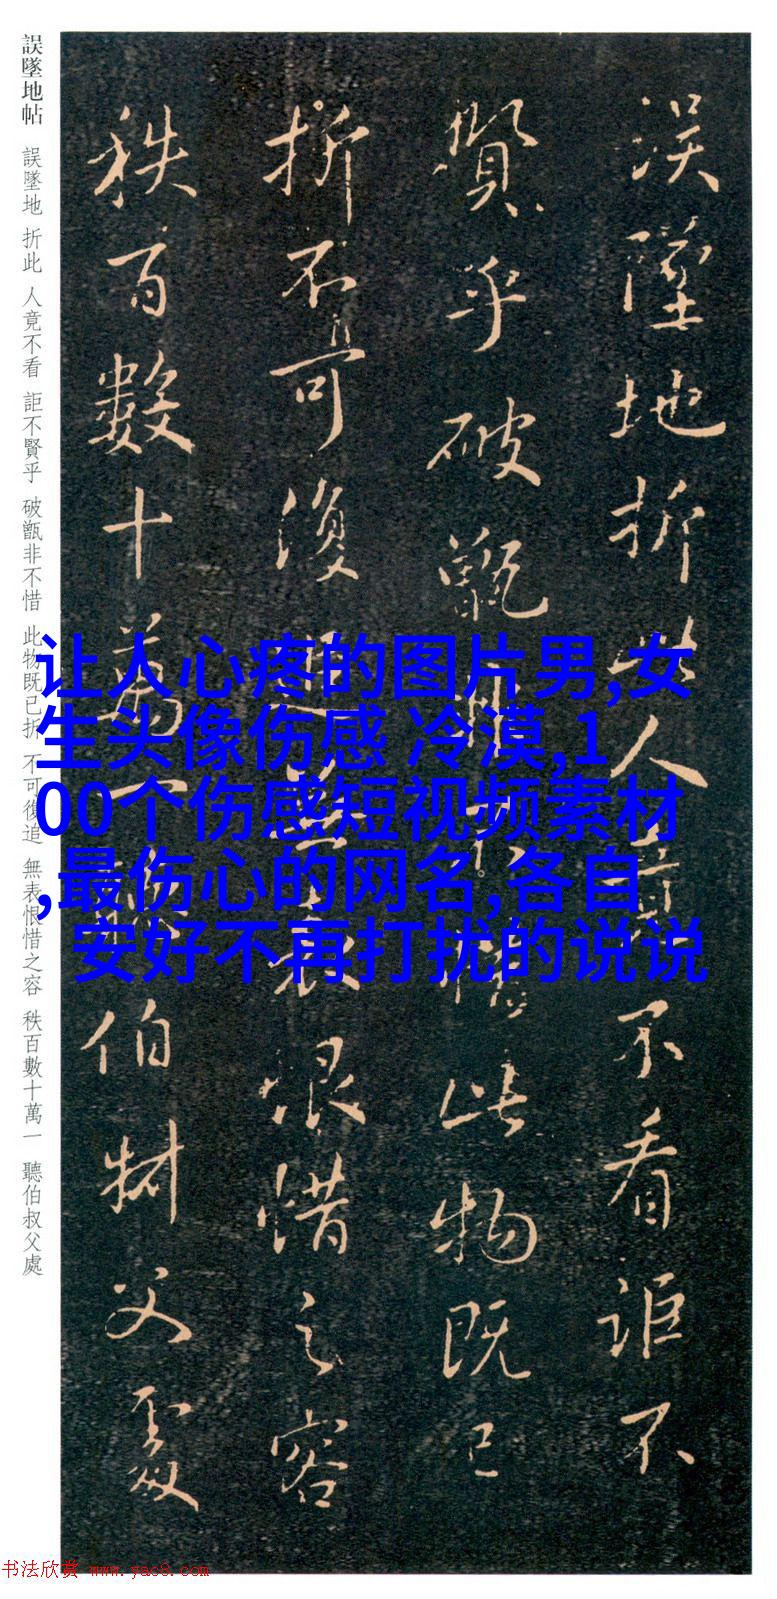 誤墜地折此人竟不看詎不
賢乎破甑非不惜此物既已
折不可復追無表恨惜之容
秩百數十萬一聽伯叔父處
誤墜地帖 誤墜地 折此 人竟不看 詎不賢乎 破甑非不惜 此物既已折 不可復追 無表恨惜之容 秩百數十萬一 聽伯叔父處
让人心疼的图片男,女
生头像伤感 冷漠,1
00个伤感短视频素材
,最伤心的网名,各自
安好不再打扰的说说
书法欣赏 www.yac8.com